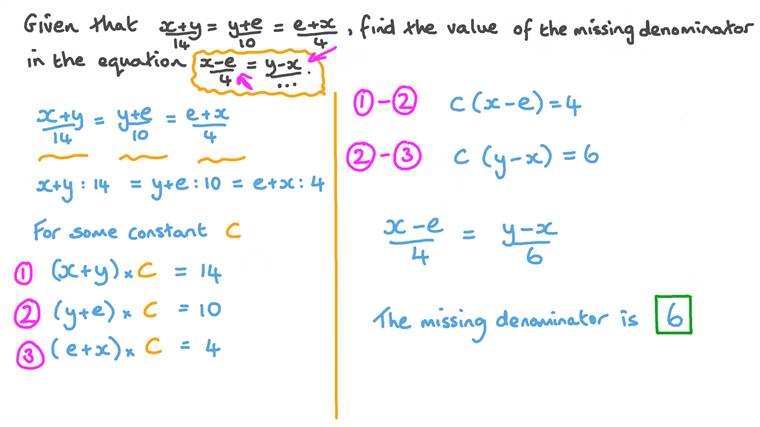 Given that x+y/14 = y+e/10 = e+x/4, find the value of the missing denominator
in the equation x-e/4 = y-x/... .
x+y/14 = y+e/10 = e+x/4
x+y : 14 = y+e : 10 = e+x : 4
For some constant C
① (x+y) × C = 14
② (y+e) × C = 10
③ (e+x) × C = 4
①-② C (x-e) = 4
②-③ C (y-x) = 6
x-e/4 = y-x/6
The missing denominator is 6